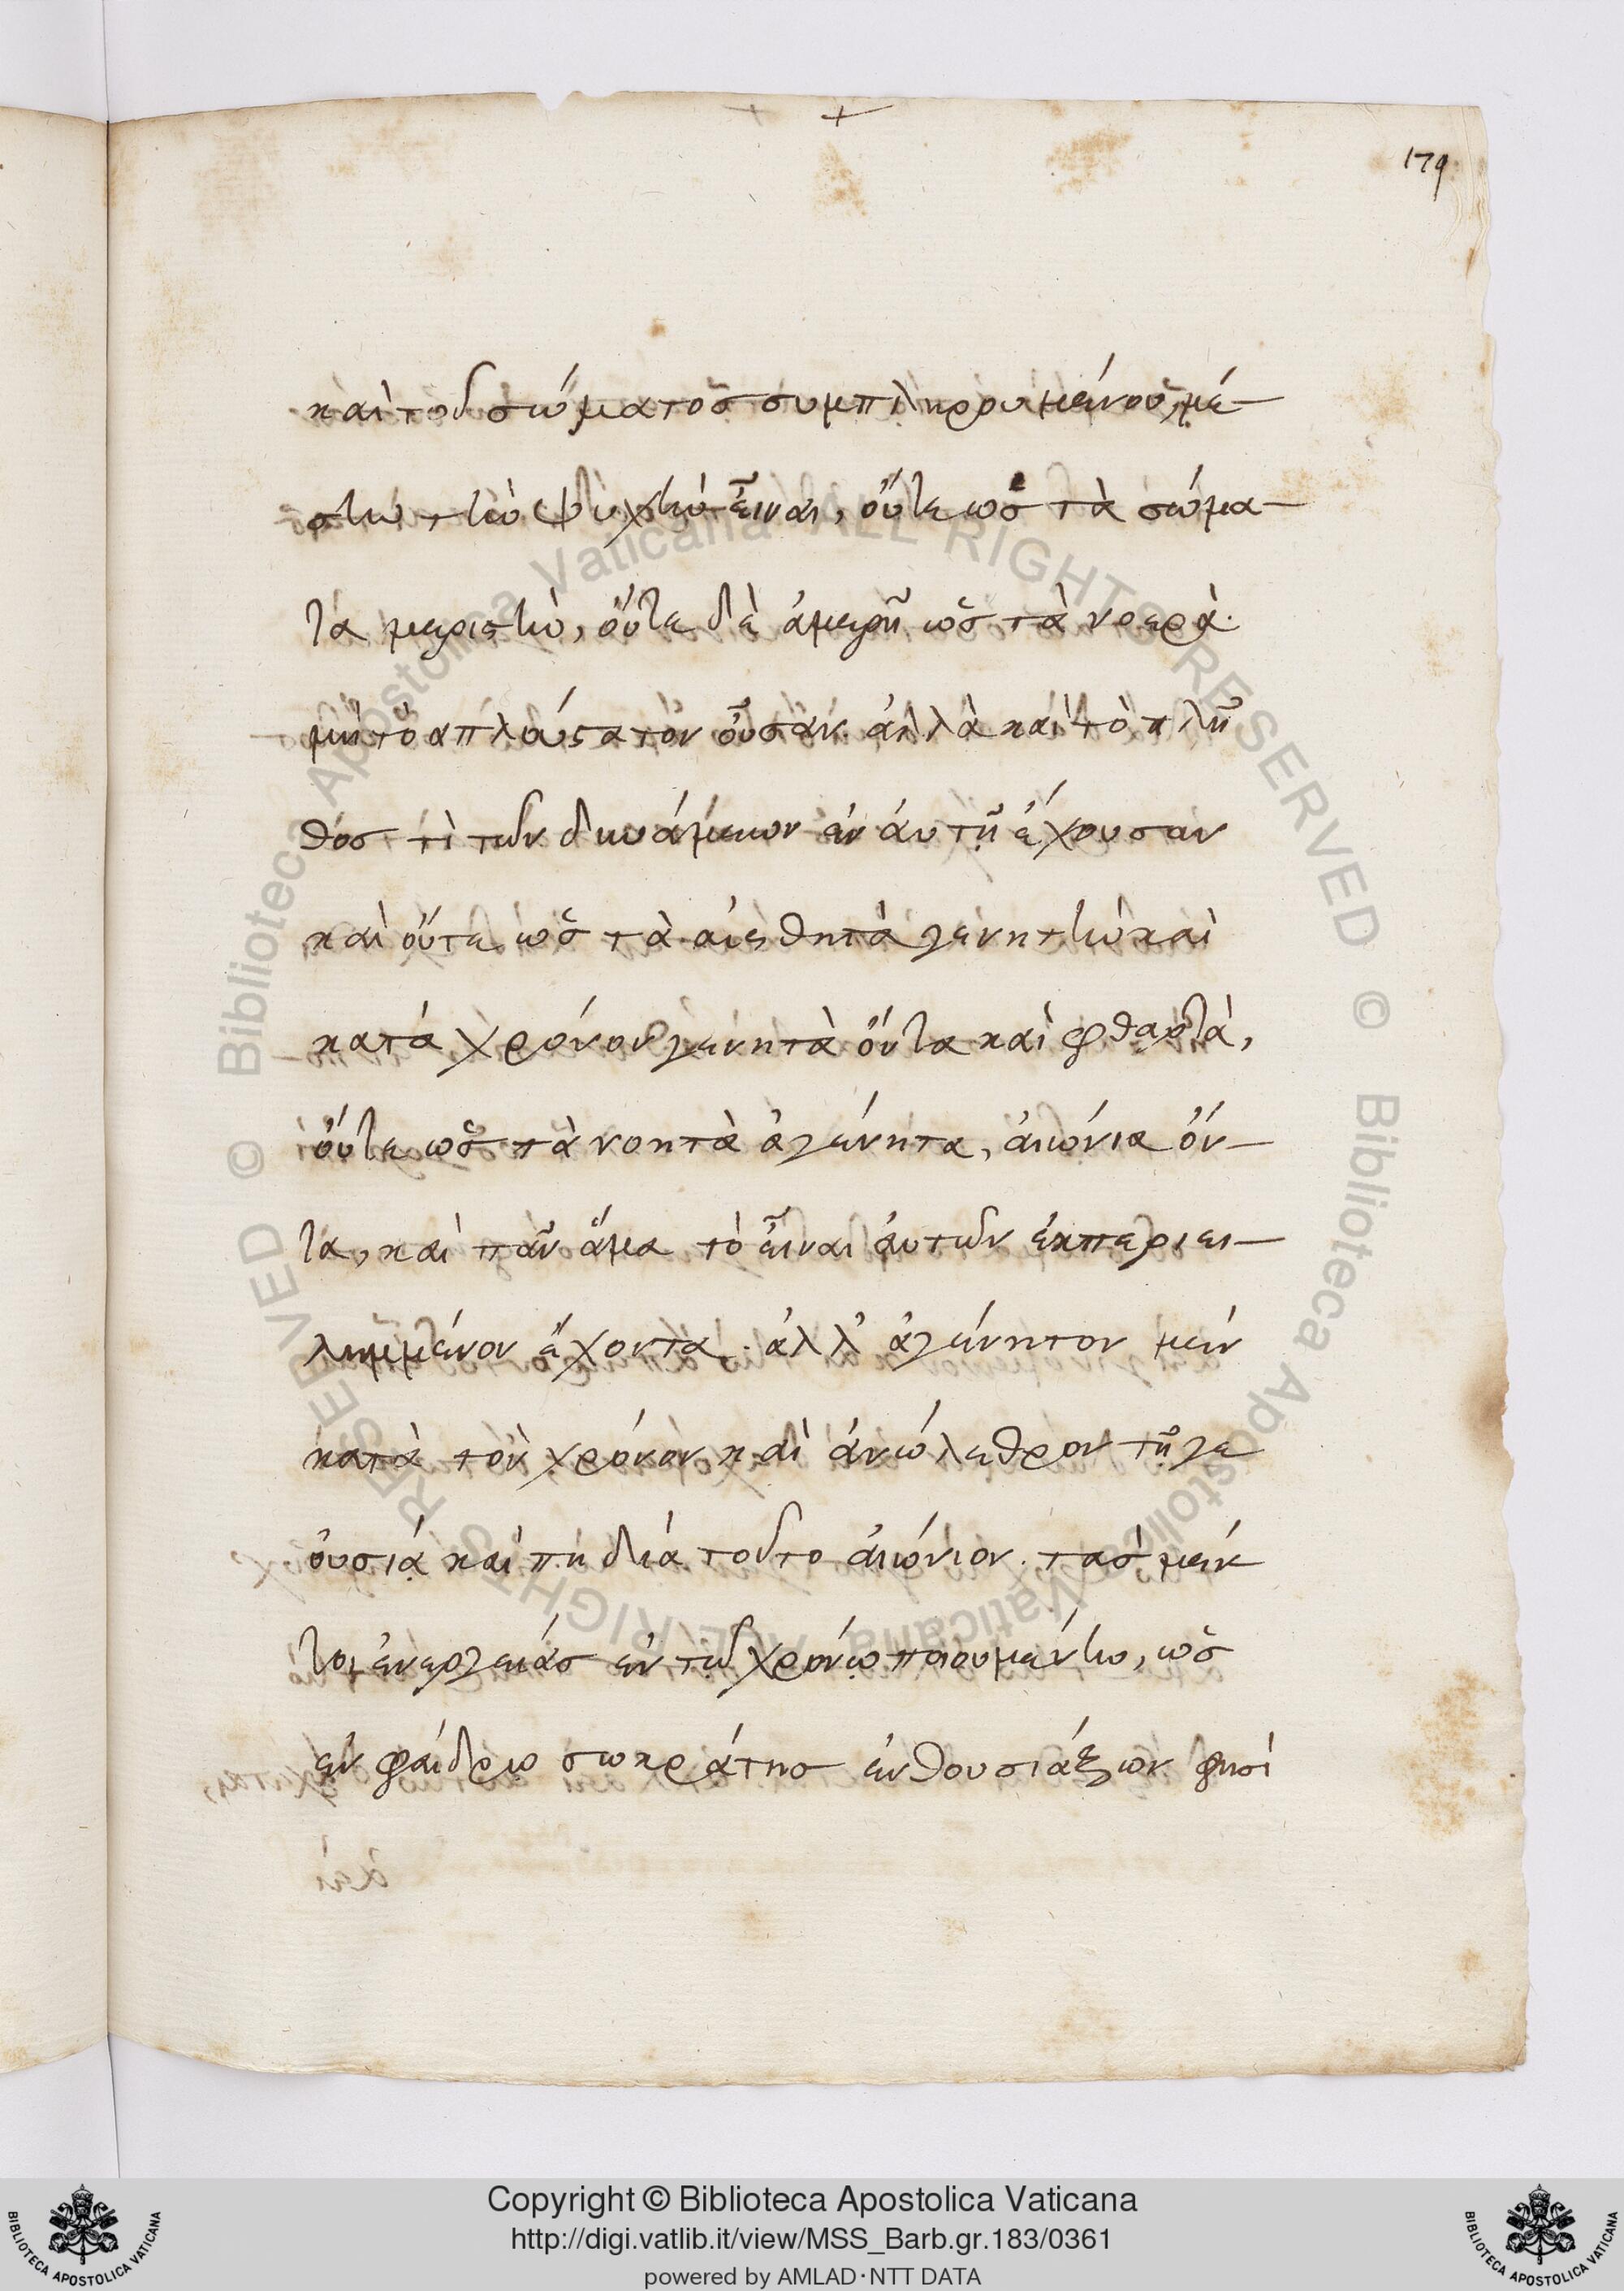 179
καὶ τοῦ σώματος συμπληρουμένου, μέ-
σην τὴν ψυχὴν εἶναι, οὔτε ὡς τὰ σώμα-
τα μεριστὴν, οὔτε δὲ ἀμερῆ ὡς τὰ νοερὰ.
μὴ τὸ ἁπλούστατον οὖσαν. ἀλλὰ καὶ τὸ πλῆ
θος τὶ τῶν δυνάμεων ἐν ἁυτῇ ἔχουσαν
καὶ οὔτε ὡς τὰ αἰσθητὰ γενητὴν καὶ
κατὰ χρόνον γενητὰ ὄντα καὶ φθαρτὰ,
οὔτε ὡς τὰ νοητὰ ἀγένητα, ἀιώνια ὄν-
τα, καὶ πᾶν ἅμα τὸ εἶναι ἀυτῶν ἐκπεριει-
λημμένον ἔχοντα. ἀλλ' ἀγένητον μὲν
κατὰ τὸν χρόνον καὶ ἀνώλεθρον τῇ γε
ὀυσίᾳ καὶ πη διὰ τοῦτο ἀιώνιον. τὰς μέν
τοι ἐνεργείας ἐν τῷ χρόνῳ ποιουμένην, ὡς
ἐν φαίδρῳ σωκράτης ἐνθουσιάζων φησὶ
Copyright © Biblioteca Apostolica Vaticana
http://digi.vatlib.it/view/MSS_Barb.gr.183/0361
powered by AMLAD·NTT DATA